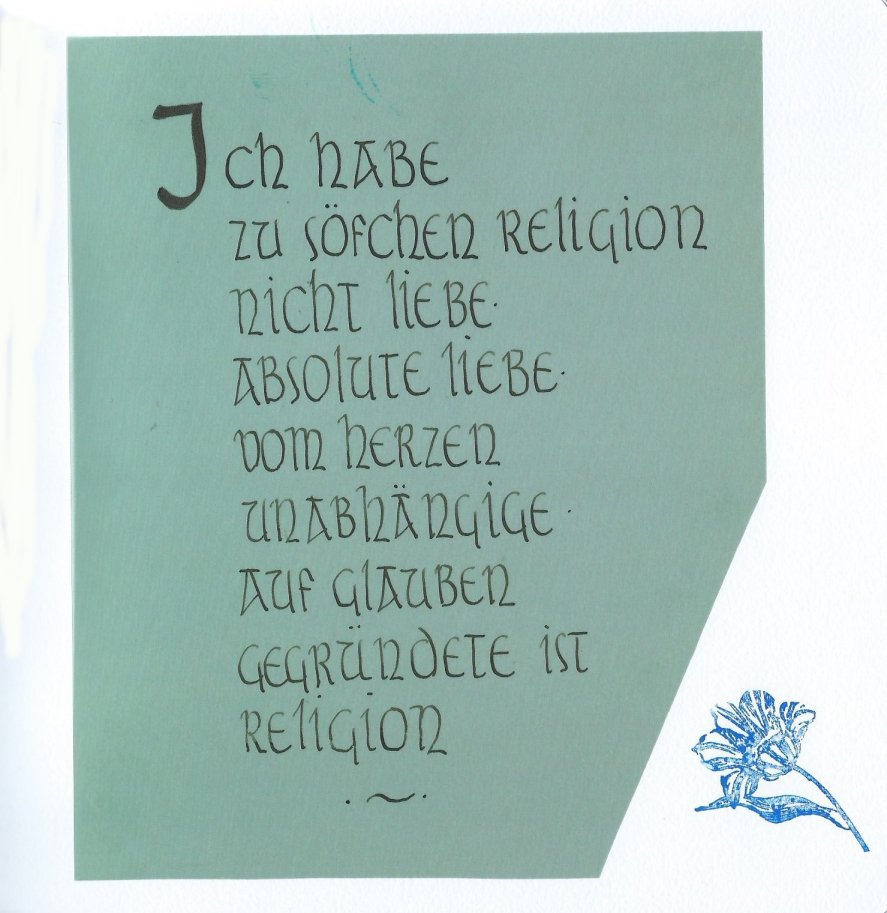 Ich habe
zu söfchen Religion
nicht liebe.
absolute liebe.
vom herzen
unabhängige.
auf glauben
gegründete ist
Religion